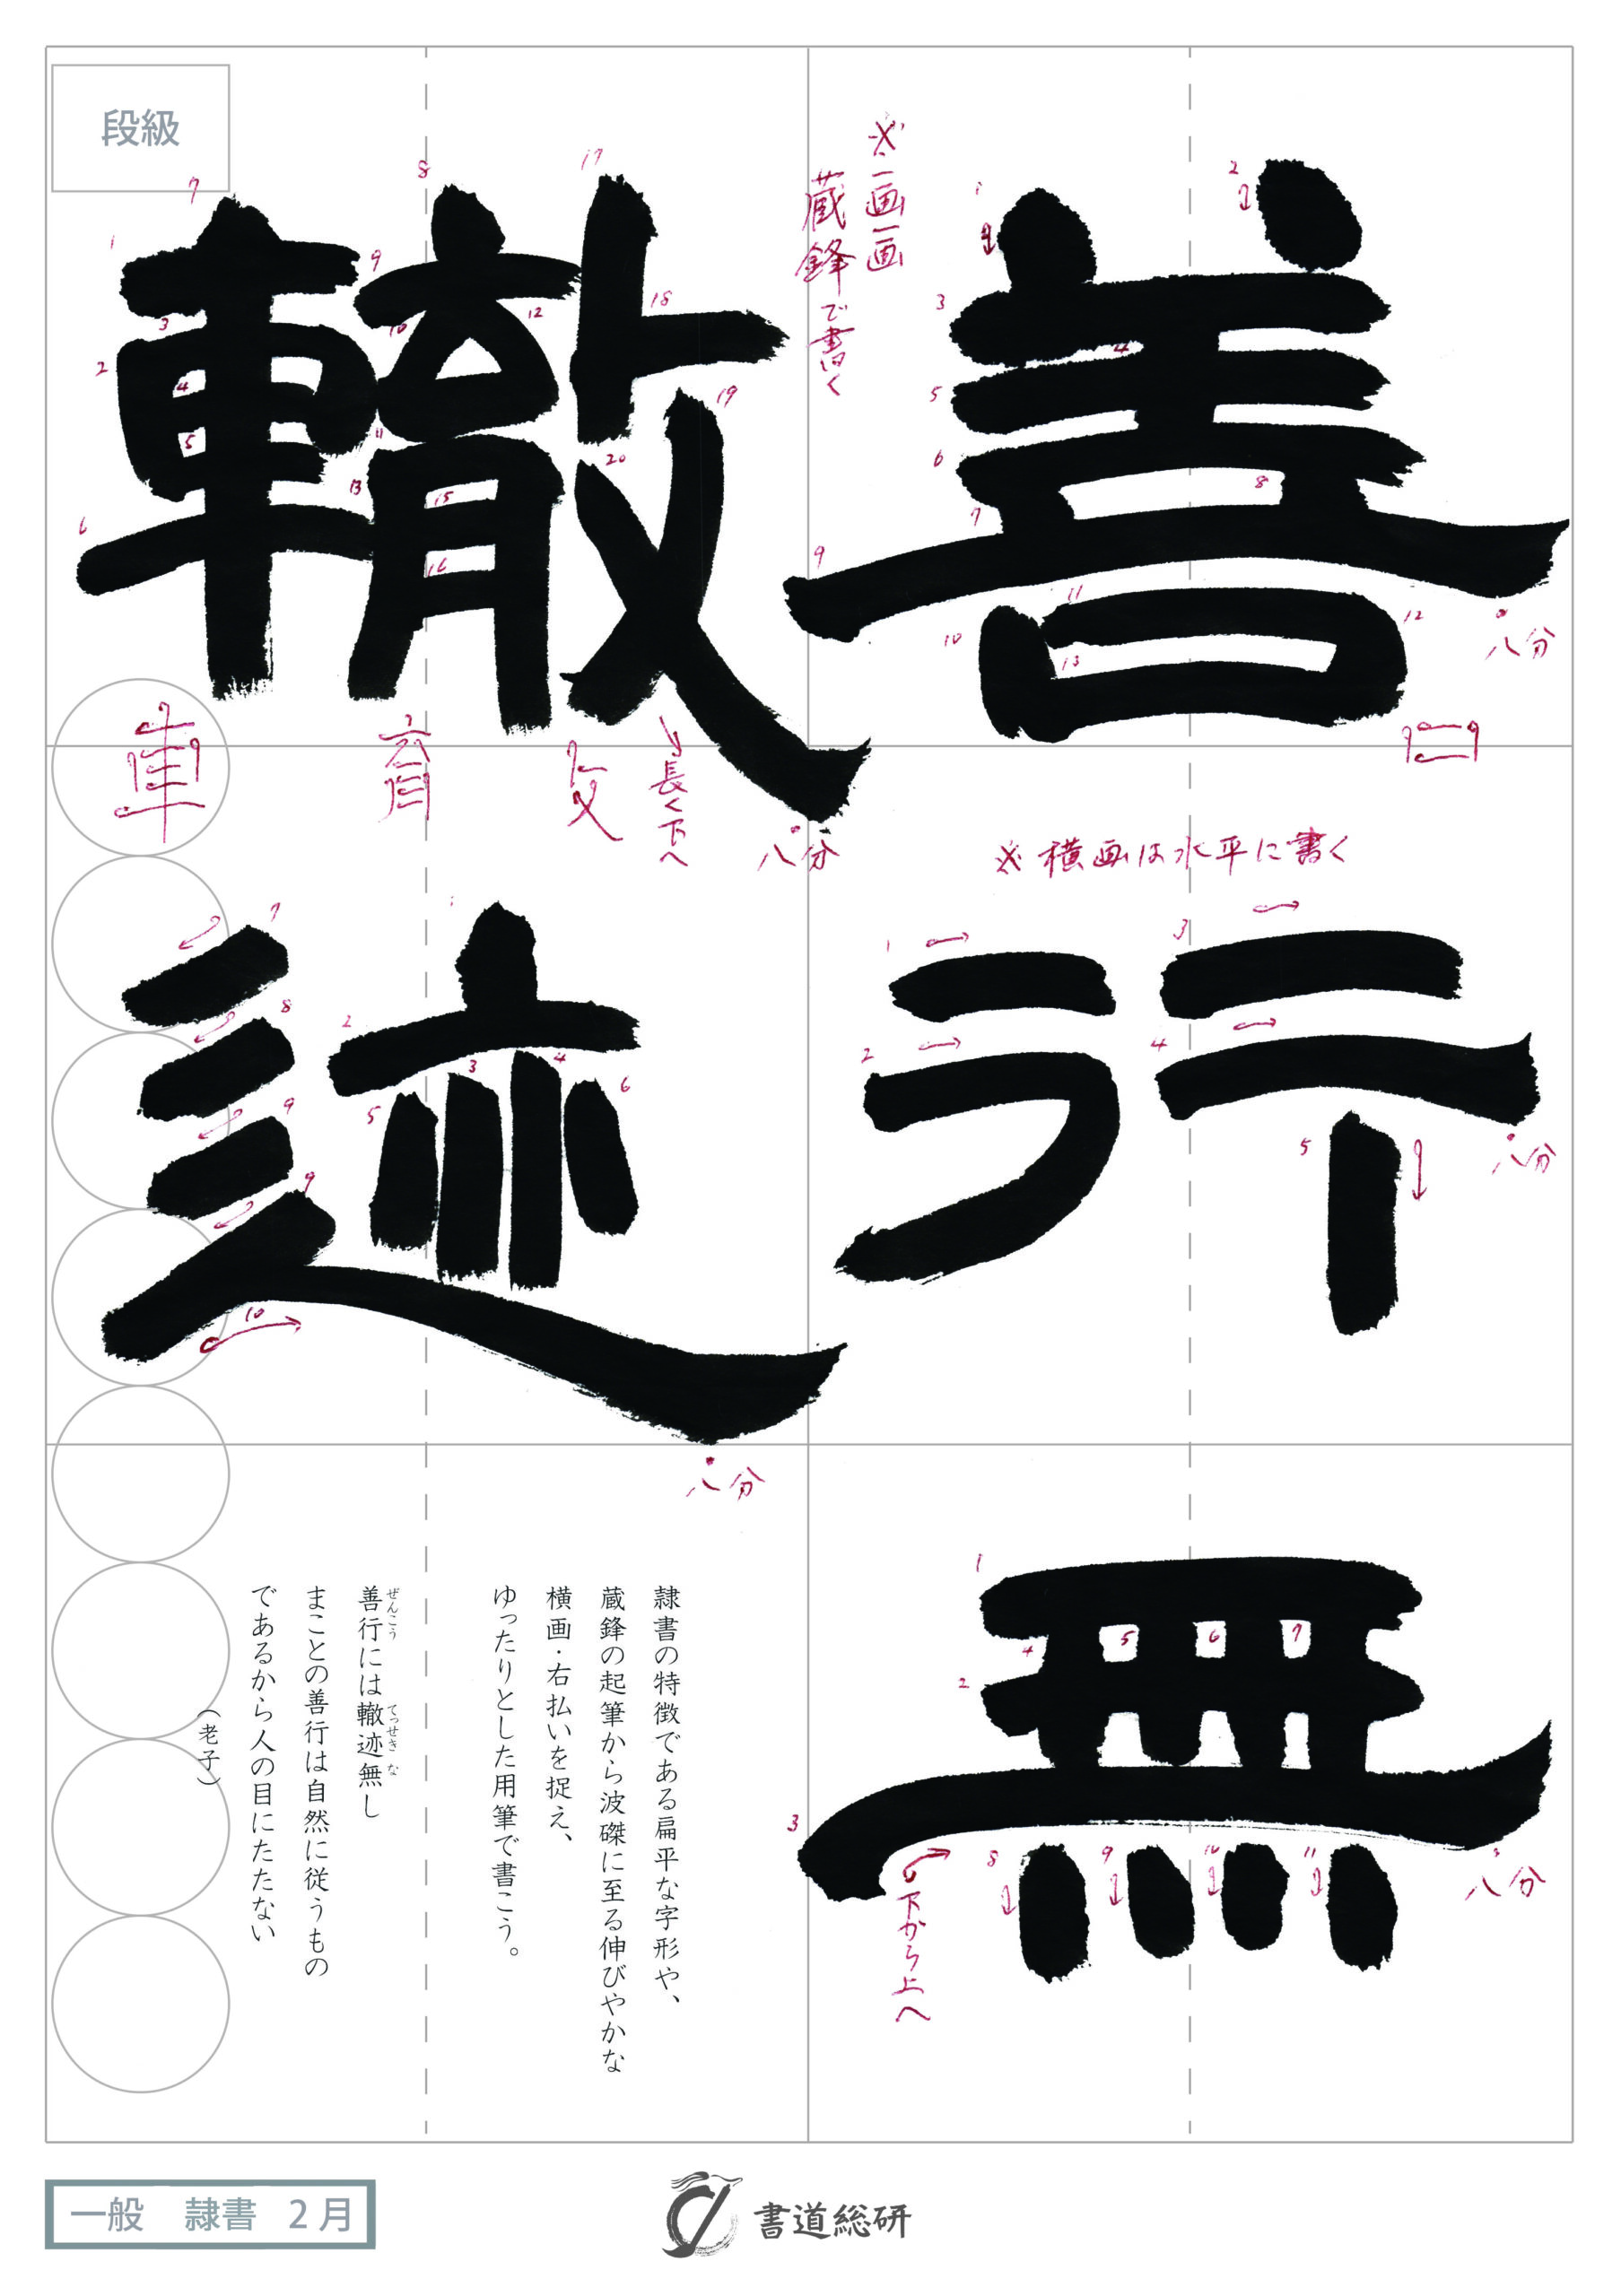 善行無
轍迹
段級
※一画一画
蔵鋒で書く
八分
長く下へ
八分
※横画は水平に書く
八分
八分
下から上へ
八分
隷書の特徴である扁平な字形や、
蔵鋒の起筆から波磔に至る伸びやかな
横画・右払いを捉え、
ゆったりとした用筆で書こう。
善行には轍迹無し
ぜんこう
てっせき
な
まことの善行は自然に従うもの
であるから人の目にたたない
(老子)
一般 隷書 2月
書道総研